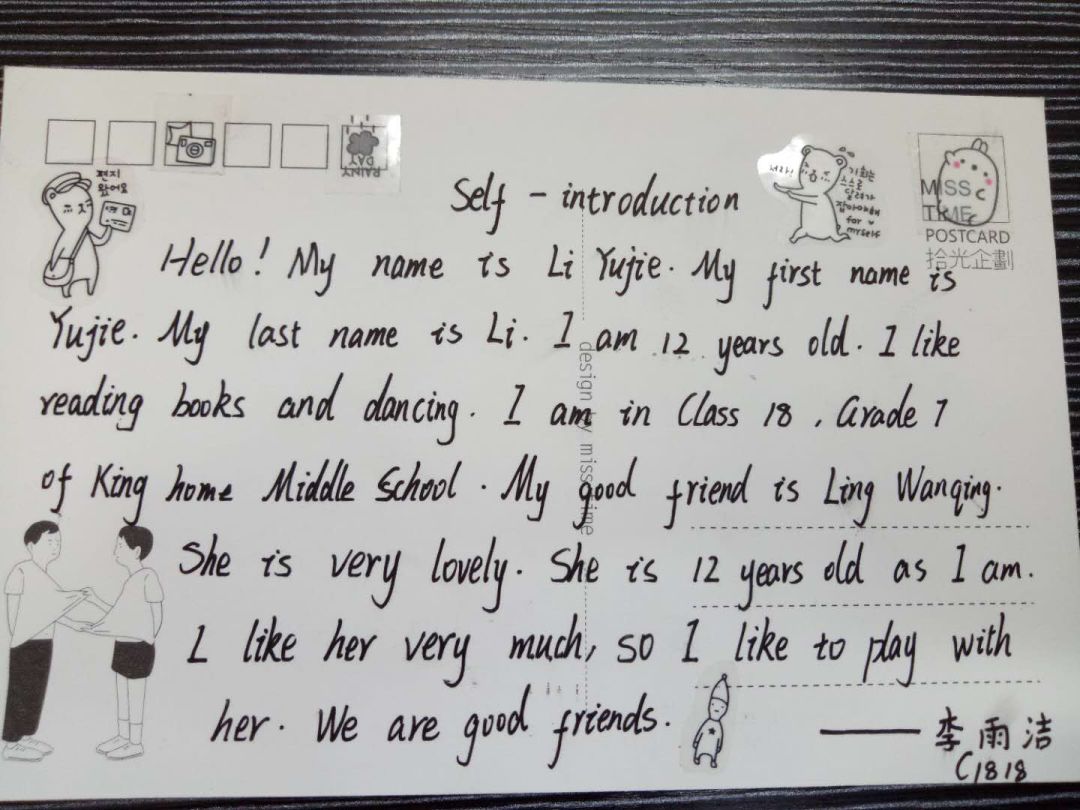 RAINY DAY
편지
왔어요
Self - introduction
기회는
스스로
달려가
잡아야해
for
myself
MISS
TIME
POSTCARD
拾光企劃
Hello! My name is Li Yujie. My first name is
Yujie. My last name is Li. I am 12 years old. I like
reading books and dancing. I am in Class 18, Grade 7
of King home Middle School. My good friend is Ling Wanqing.
She is very lovely. She is 12 years old as I am.
I like her very much, so I like to play with
her. We are good friends.
design by miss time
——李雨洁
C1818